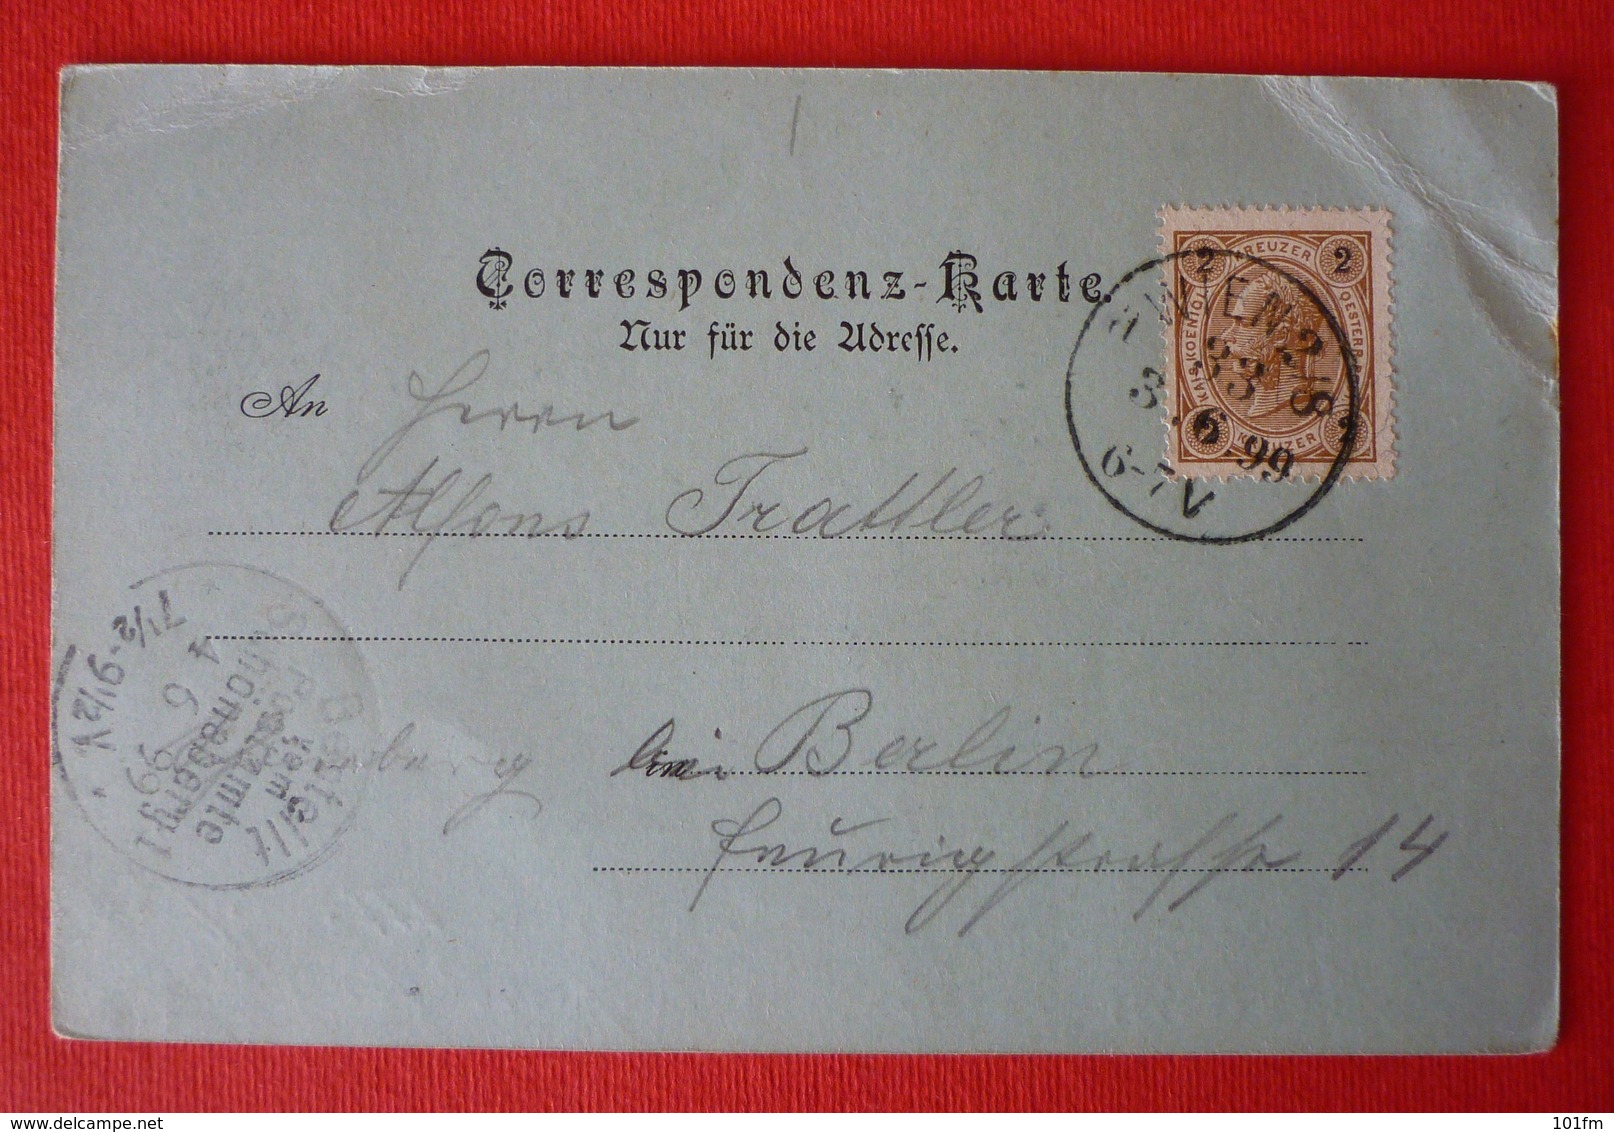 Correspondenz-Karte.
Nur für die Adresse.
An Herrn
Alfons Trattler
bei Berlin
straße 14
2 KREUZER 2
KAIS. KOENIGL. OESTERR.
2 KREUZER 2
WIEN
6 99
6-7V
Bestellt
vom
Postamte
4 6 99
7 1/2-9 1/2 V
101fm